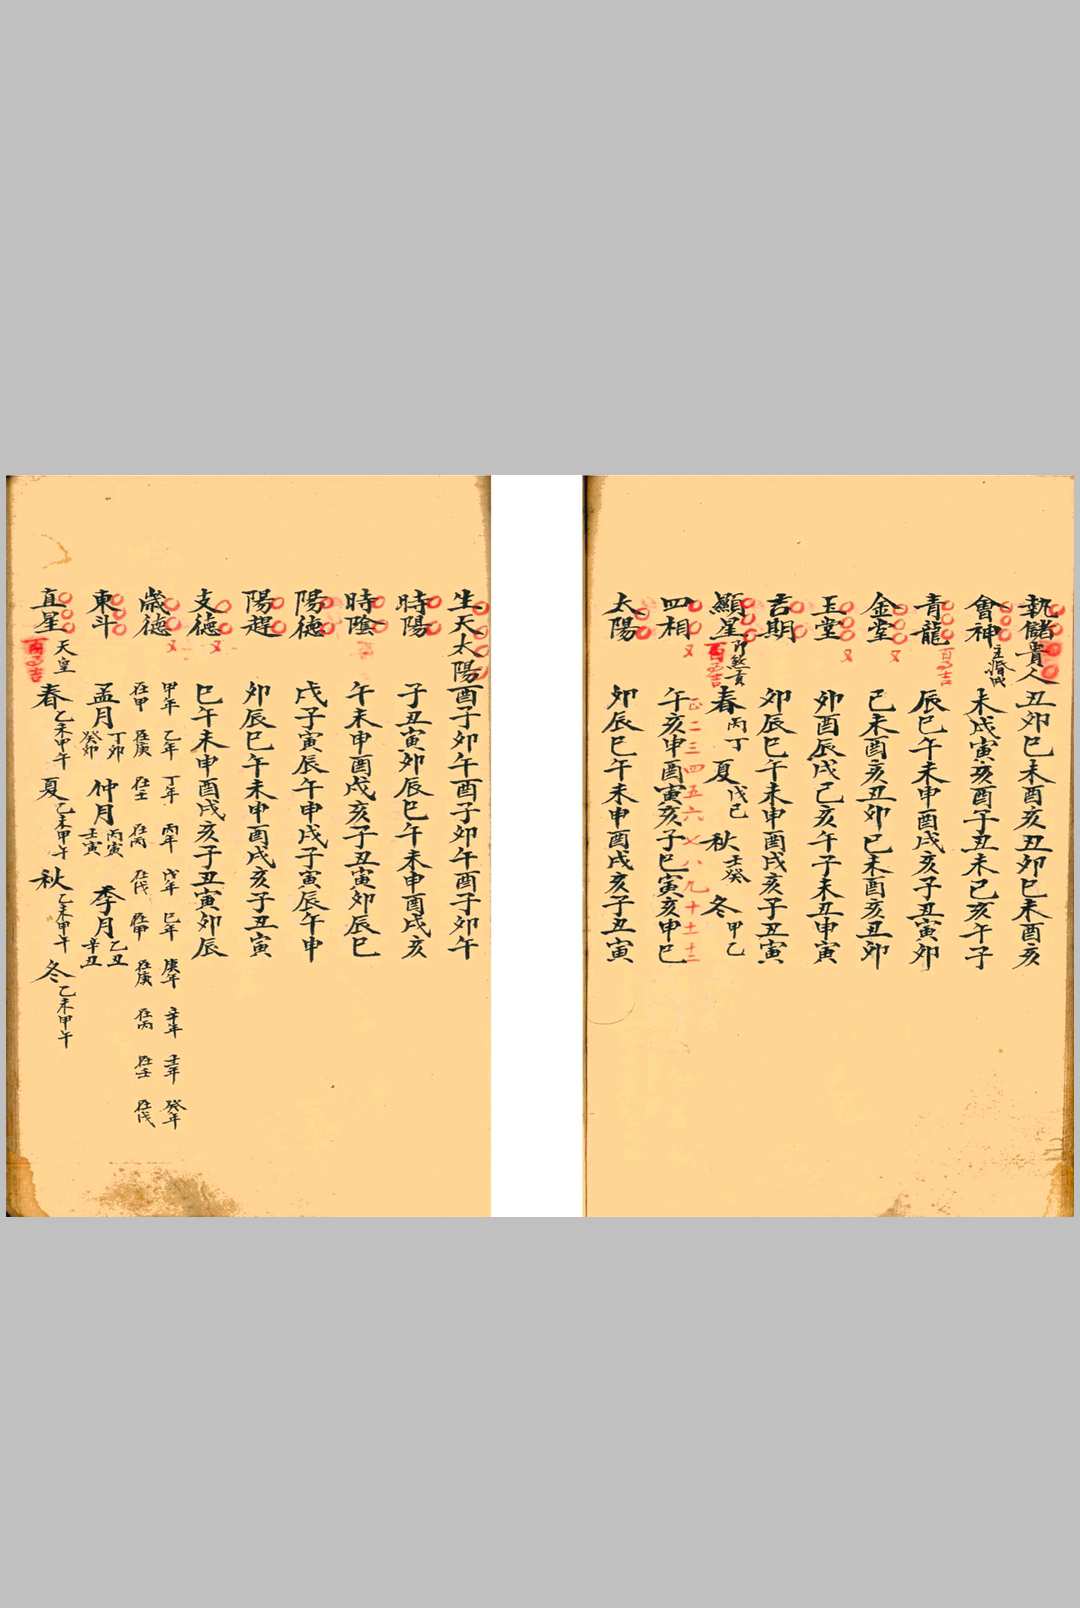 執儲貴人 丑卯巳未酉亥丑卯巳未酉亥
會神 主婚成 未戌寅亥酉子丑未巳亥午子
青龍 百事吉 辰巳午未申酉戌亥子丑寅卯
金堂 又 巳未酉亥丑卯巳未酉亥丑卯
玉堂 又 卯酉辰戌巳亥午子未丑申寅
吉期 卯辰巳午未申酉戌亥子丑寅
顯星 即煞貢 百事吉 春 丙丁 夏 戊己 秋 壬癸 冬 甲乙
正二三四五六七八九十十一十二
四相 又 午亥申酉寅亥子巳寅亥申巳
太陽 卯辰巳午未申酉戌亥子丑寅
生天太陽 酉子卯午酉子卯午酉子卯午
時陽 子丑寅卯辰巳午未申酉戌亥
時陰 午未申酉戌亥子丑寅卯辰巳
陽德 戌子寅辰午申戌子寅辰午申
陽趕 卯辰巳午未申酉戌亥子丑寅
支德 又 巳午未申酉戌亥子丑寅卯辰
歲德 又 甲年 乙年 丁年 丙年 戊年 巳年 庚年 辛年 壬年 癸年
在甲 在庚 在壬 在丙 在戊 在甲 在庚 在丙 在壬 在戊
東斗 孟月 丁卯 癸卯 仲月 丙寅 壬寅 季月 乙丑 辛丑
直星 天皇 百事吉 春 乙未甲午 夏 乙未甲午 秋 乙未甲午 冬 乙未甲午